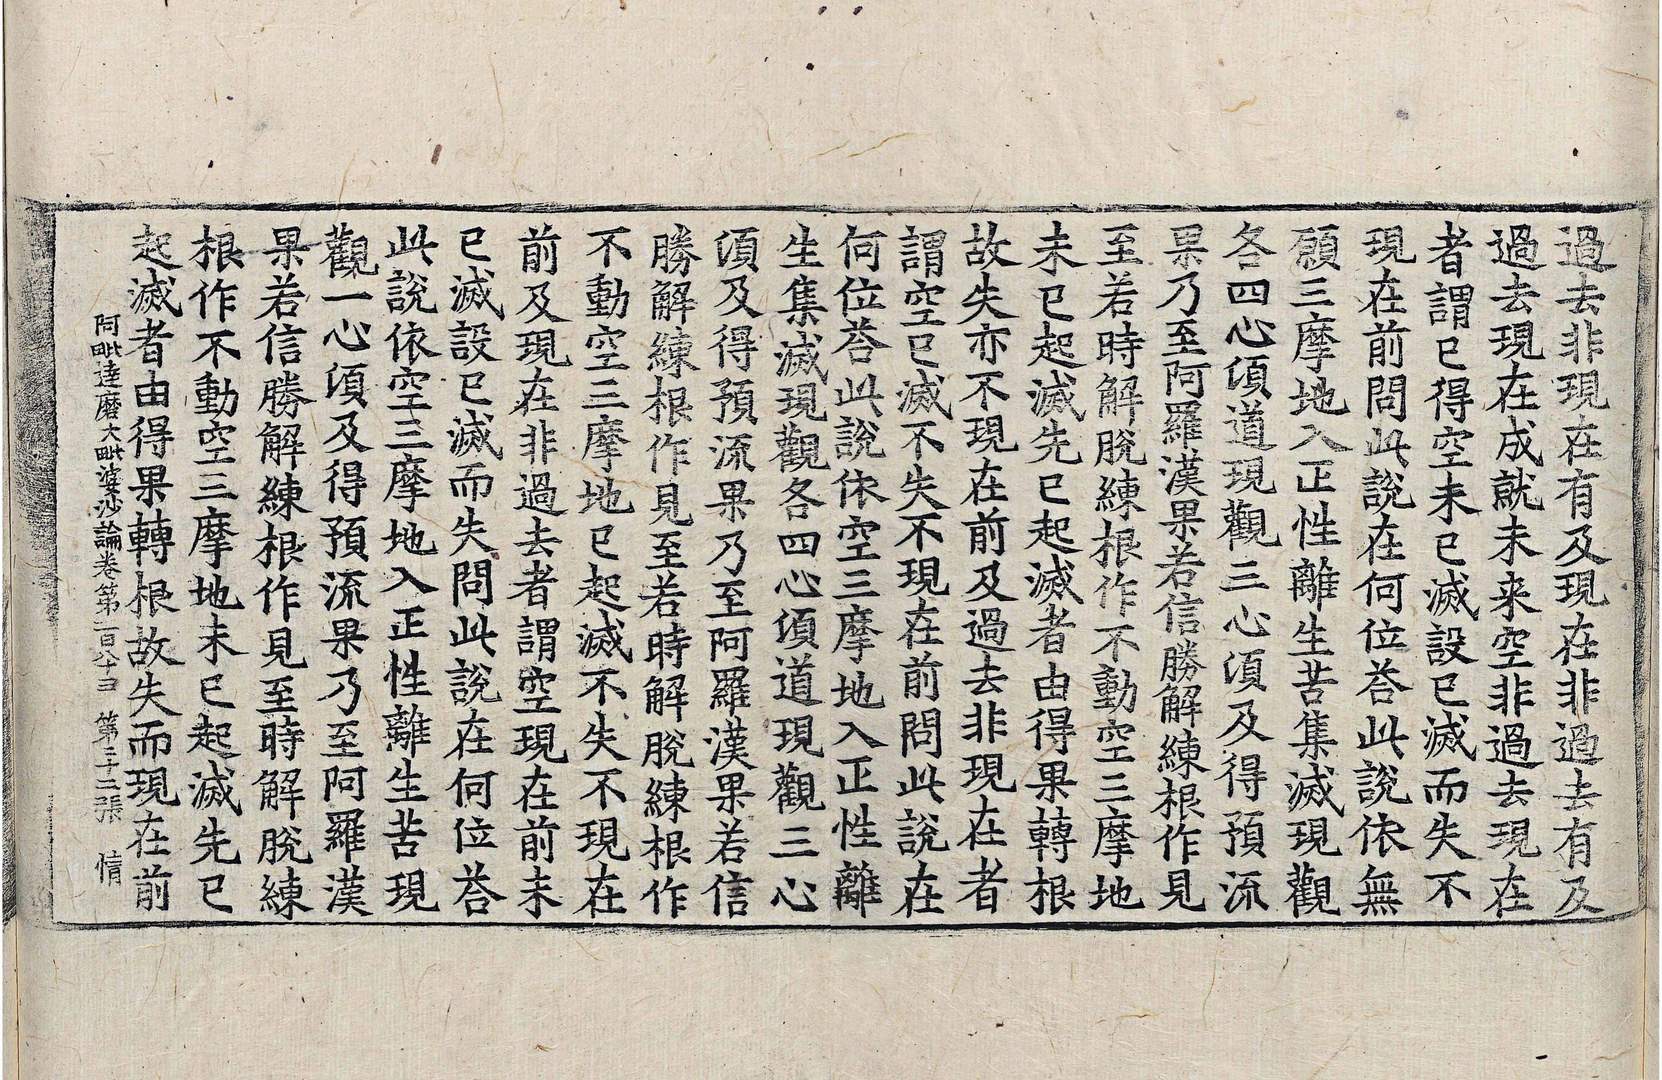 過去非現在有及現在非過去有及
過去現在成就未来空非過去現在
者謂已得空未已滅設已滅而失不
現在前問此說在何位荅此說依無
願三摩地入正性離生苦集滅現觀
各四心須道現觀三心須及得預流
果乃至阿羅漢果若信勝解練根作見
至若時解脫練根作不動空三摩地
未已起滅先已起滅者由得果轉根
故失亦不現在前及過去非現在者
謂空已滅不失不現在前問此說在
何位荅此說依空三摩地入正性離
生集滅現觀各四心須道現觀三心
須及得預流果乃至阿羅漢果若信
勝解練根作見至若時解脫練根作
不動空三摩地已起滅不失不現在
前及現在非過去者謂空現在前未
已滅設已滅而失問此說在何位荅
此說依空三摩地入正性離生苦現
觀一心須及得預流果乃至阿羅漢
果若信勝解練根作見至時解脫練
根作不動空三摩地未已起滅先已
起滅者由得果轉根故失而現在前
阿毗達磨大毗婆沙論卷第一百八十 第二十三張 情